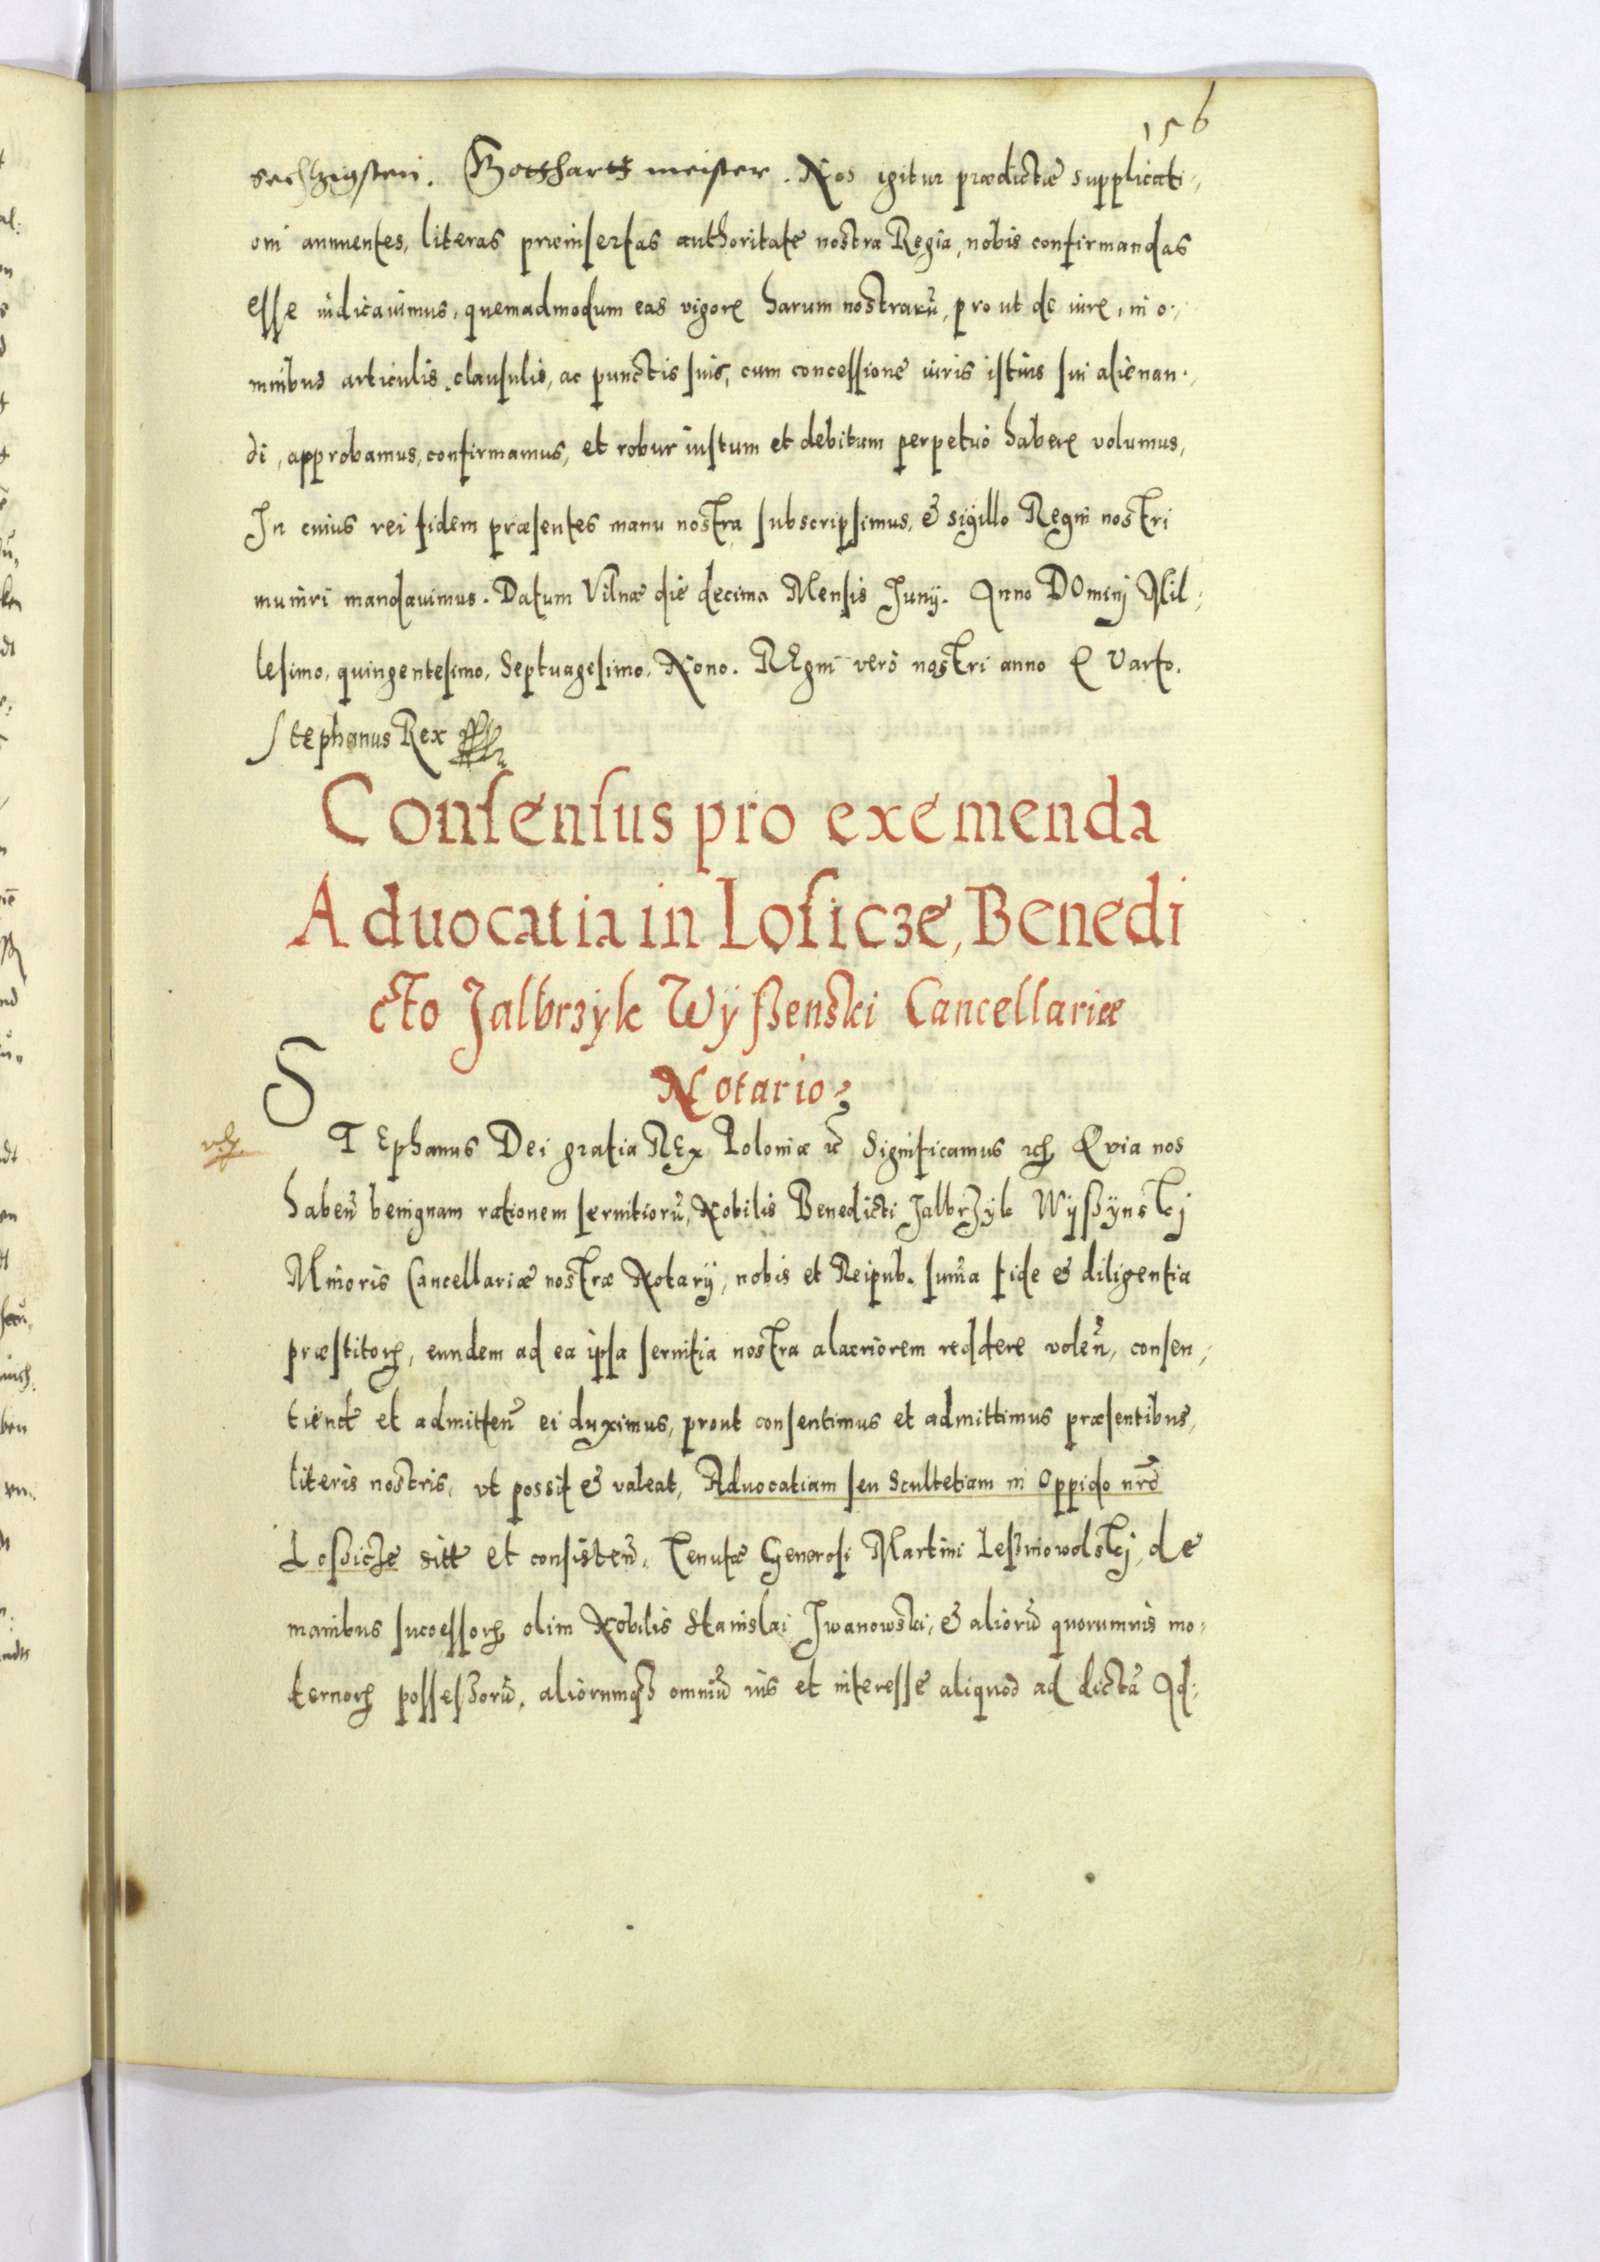 156
sechtzigsten. Gotthartt meister. Nos igitur prædictæ supplicati-
oni annuentes, literas præinsertas authoritate nostra Regia, nobis confirmandas
esse iudicauimus, quemadmodum eas vigore harum nostrarũ, pro ut de iure, in o-
mnibus articulis, clausulis, ac punctis suis, cum concessione iuris istius sui alienan-
di, approbamus, confirmamus, et robur iustum et debitum perpetuò habere volumus,
In cuius rei fidem præsentes manu nostra subscripsimus, & sigillo Regni nostri
muniri mandauimus. Datum Vilnæ die decima Mensis Junij. Anno DOminj Mil-
lesimo, quingentesimo, Septuagesimo, Nono. REgni verò nostri anno Quarto.
Stephanus Rex
Consensus pro exemenda
Aduocatia in Losicze, Benedi
cto Jalbrzyk Wyßenski Cancellariæ
Notario
STEphanus Dei gratia REx Poloniæ &c̃ Significamus Quia nos
habeñ benignam rationem seruitiorũ, Nobilis Benedicti Jalbrzyk Wyßynskj
Minoris Cancellariæ nostræ Notarij, nobis et Reipub. sum̃a fide & diligentia
præstitorꝝ, eundem ad ea ipsa seruitia nostra alacriorem reddere voleñ, consen-
tiend et admitteñ ei duximus, prout consentimus et admittimus præsentibus,
literis nostris, vt possit & valeat, Aduocatiam seu Scultetiam in Oppido nr̃o
Loßicze sitt et consisteñ, Tenutæ Generosi Martini Leßniowolskj, de
manibus sucessorꝝ olim Nobilis Stanislai Iwanowski, & aliorũ quorumuis mo-
dernorꝝ possessorũ, aliorumqꝫ omniũ ius et interesse aliquod ad dictã Ad-